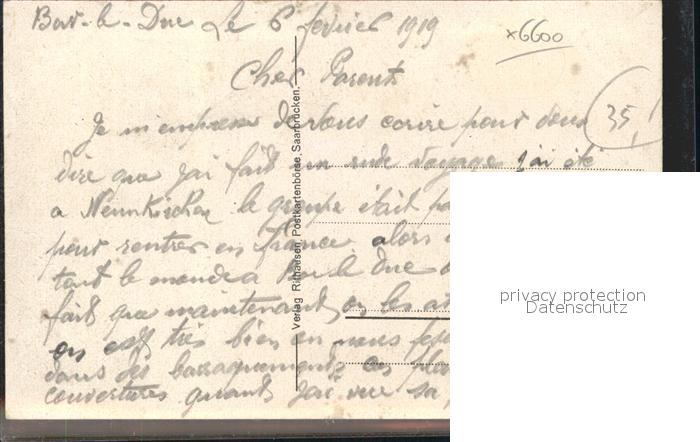 Bar-le-Duc Le 6 fevrier 1919
x6600
Cher Parents
35,
Je m'empresse de vous ecrire pour vous
dire que j'ai fait un rude voyage j'ai été
a Neunkirchen le groupe était
pour rentrer en france alors
tout le monde a Bar le Duc
fait que maintenant on les
on est très bien on nous
dans des barraquements
couvertures quant j'ai vue sa
Verlag Rithausen, Postkartenbörse, Saarbrücken.
privacy protection
Datenschutz